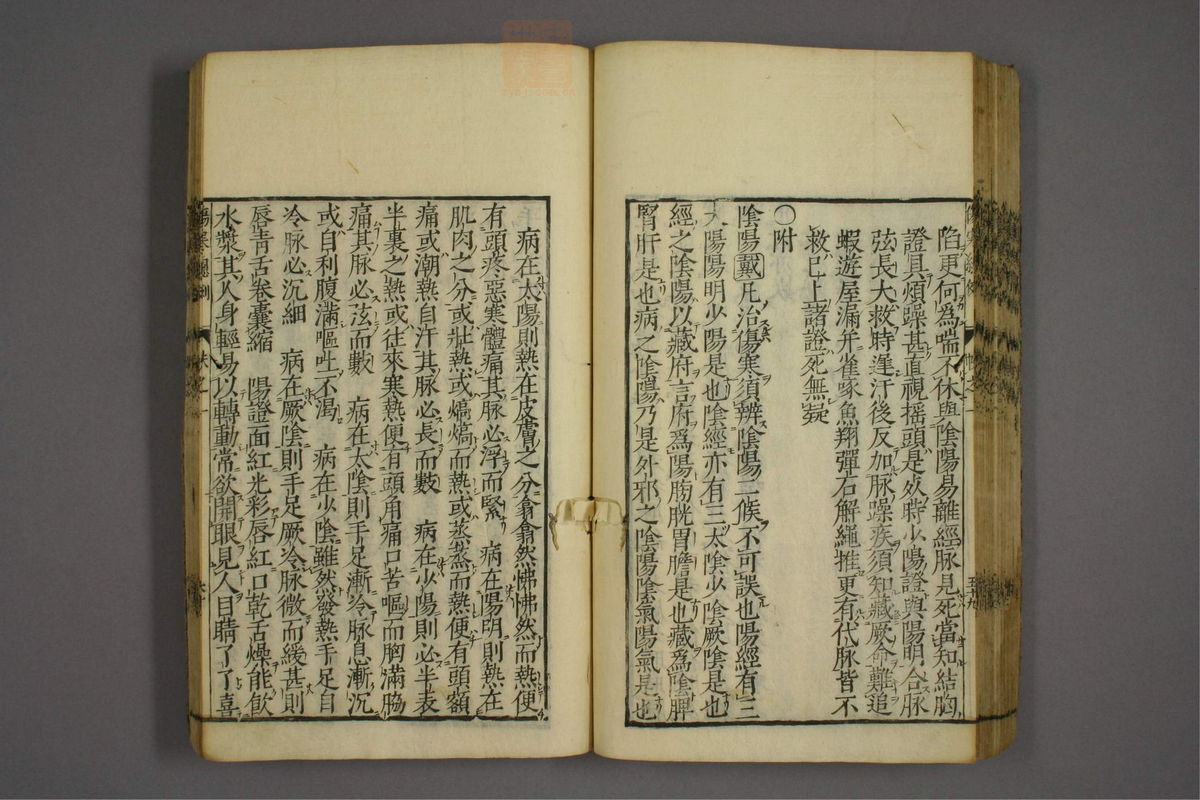 陷更何為喘不休與陰陽易離經脉見死當知結胸
證具煩躁甚直視揺頭是久時少陽證與陽明合脉
弦長大救時逢汗後反加脉躁疾須知藏厥命難追
蝦遊屋漏并雀啄魚翔彈石解繩推更有代脉皆不
救巳上諸證死無疑
〇附
陰陽戴凡治傷寒須辨陰陽二候不可誤也陽經有三
太陽陽明少陽是也陰經亦有三太陰少陰厥陰是也
經之陰陽以藏府言府爲陽膀胱胃膽是也藏爲陰脾
腎肝是也病之陰陽乃是外邪之陰陽陰氣陽氣是也
病在太陽則熱在皮膚之分翕翕然怫怫然而熱便
有頭疼惡寒體痛其脉必浮而緊 病在陽明則熱在
肌肉之分或壯熱或熇熇而熱或蒸蒸而熱便有頭額
痛或潮熱自汗其脉必長而數 病在少陽則必半表
半裏之熱或往來寒熱便有頭角痛口苦嘔而胸滿脇
痛其脉必弦而數 病在太陰則手足漸冷脉息漸沉
或自利腹滿嘔吐不渴 病在少陰雖然發熱手足自
冷脉必沉細 病在厥陰則手足厥冷脉微而緩甚則
唇青舌卷囊縮 陽證面紅光彩唇紅口乾舌燥能飲
水漿其人身輕易以轉動常欲開眼見人目睛了了喜